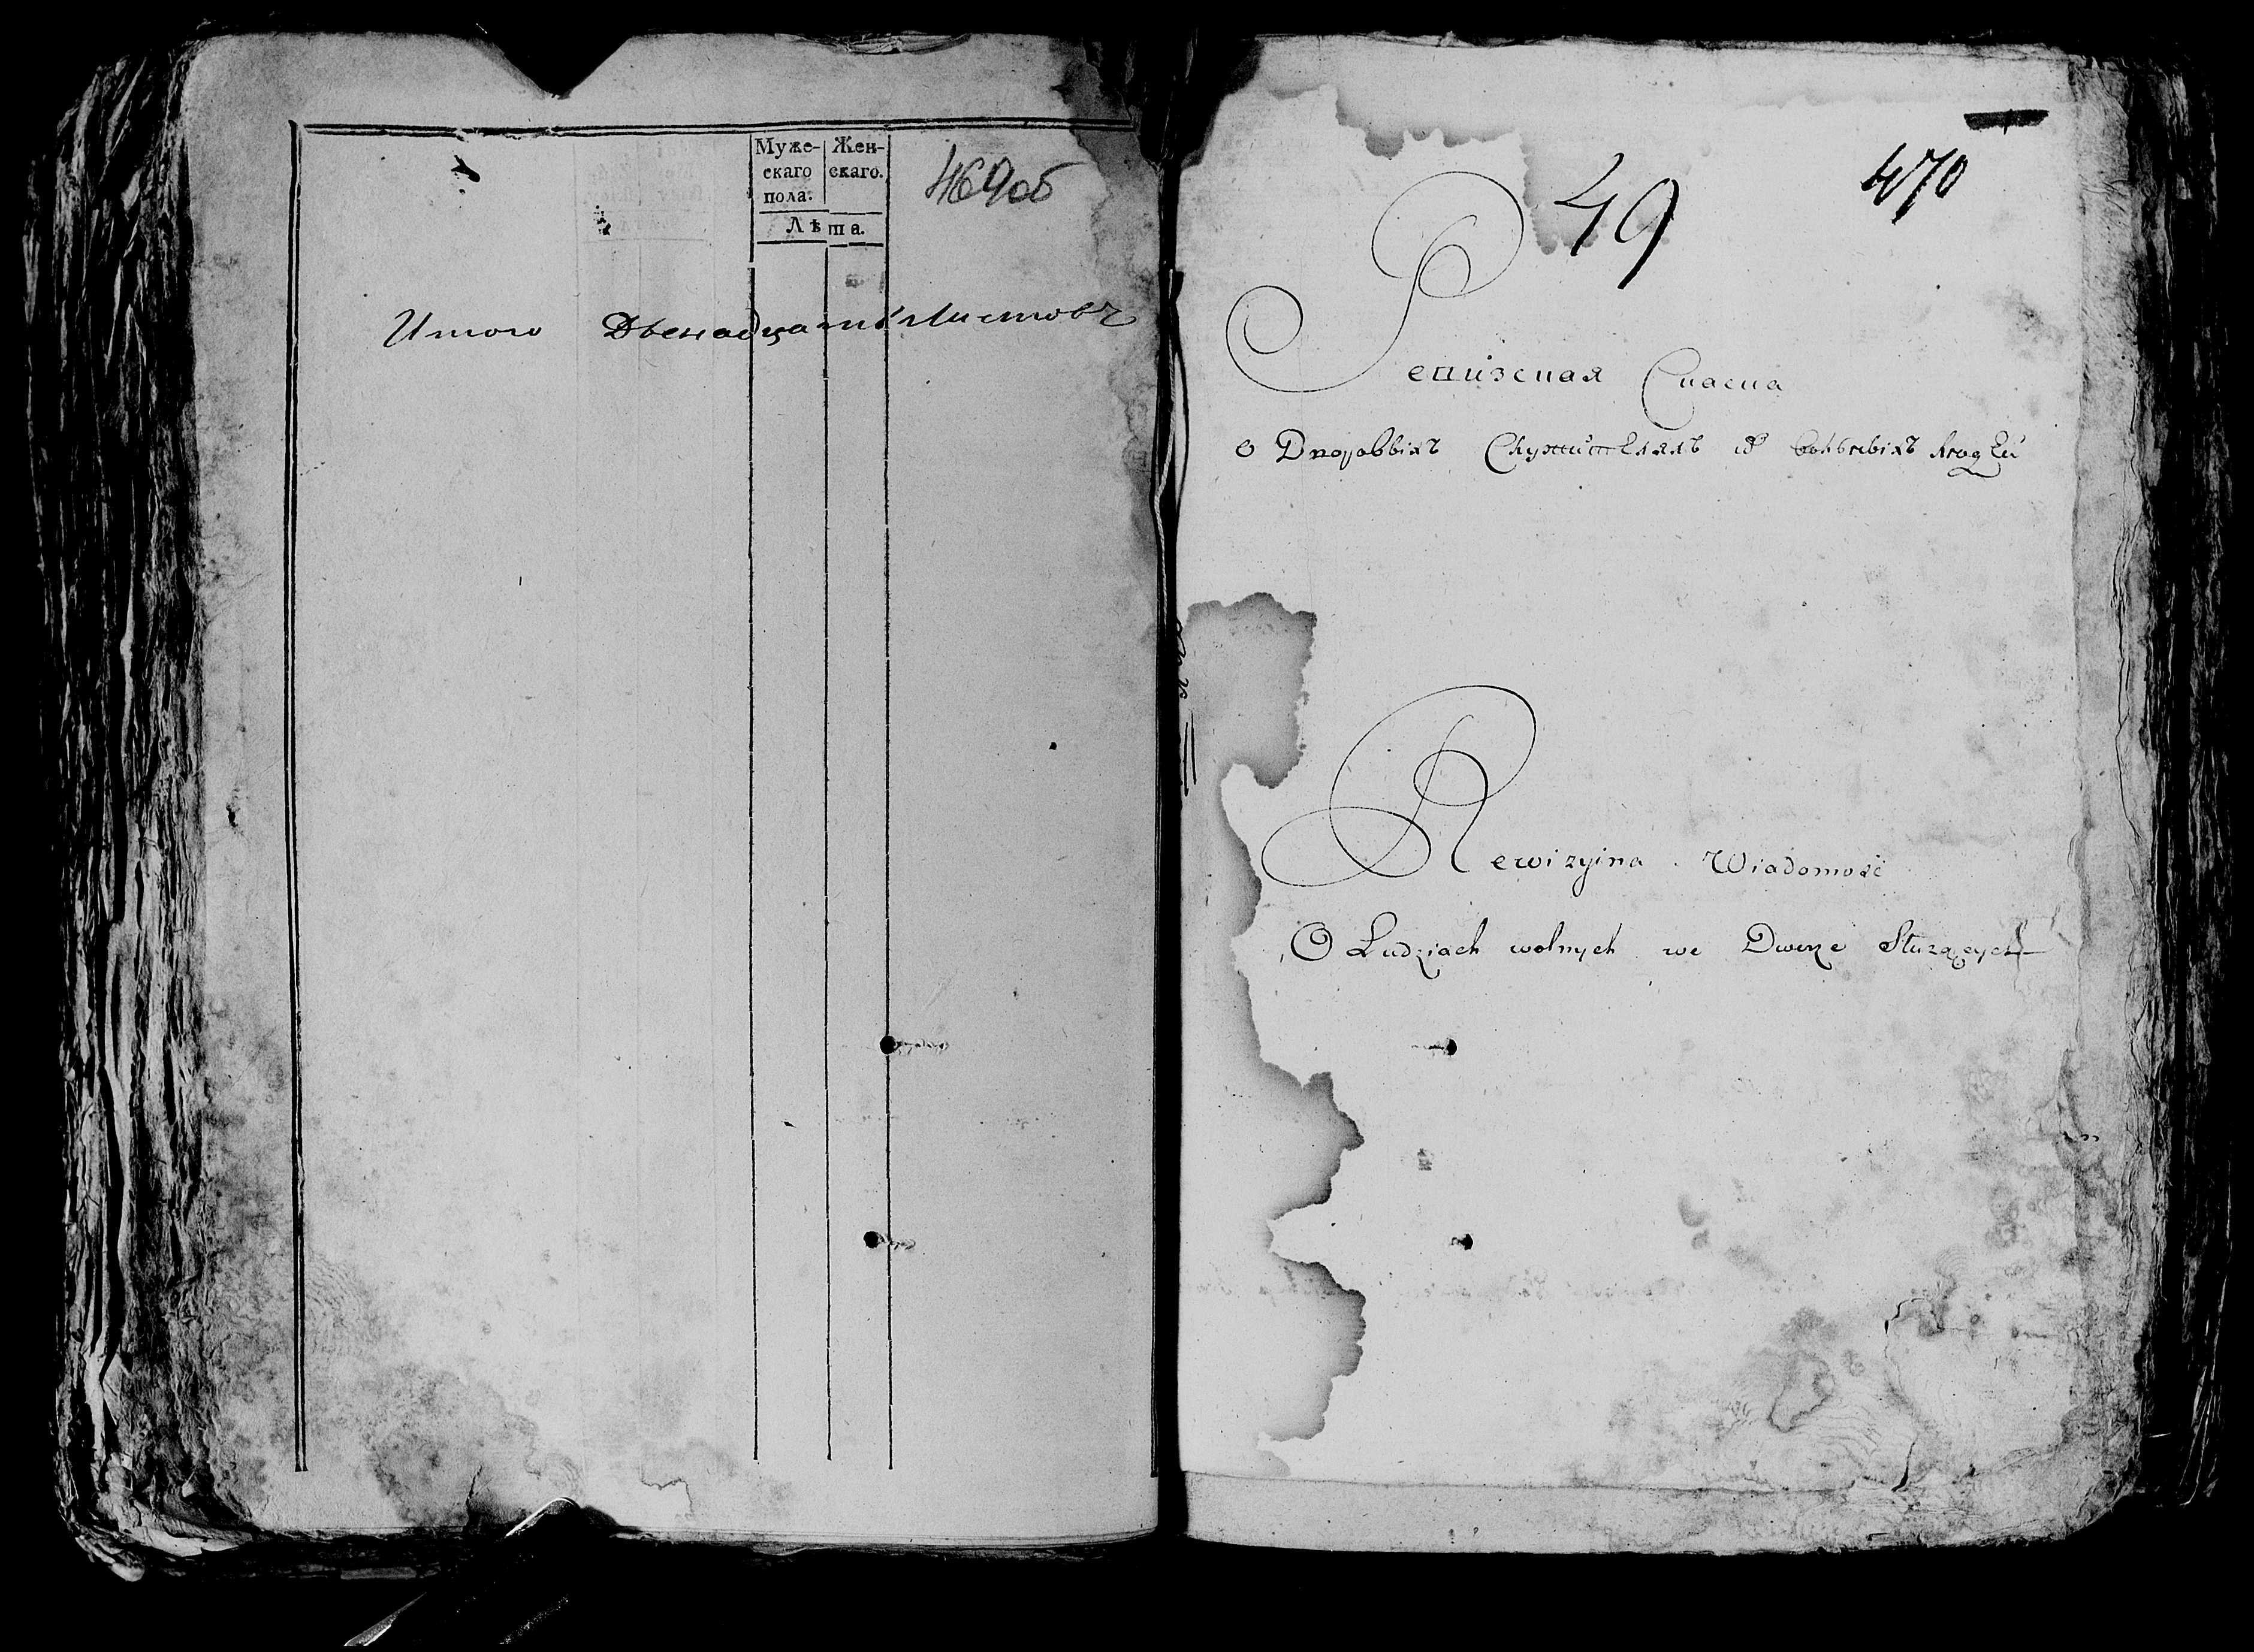 Муже-
скаго
пола:
Жен-
скаго.
Лѣта.
469об
Итого Двенадцать Листовъ
470
49
Ревизская Скаска
о Дворовыхъ Служителяхъ из вольныхъ людей
Rewizyina Wiadomość
O Ludziach wolnych we Dworze Służących